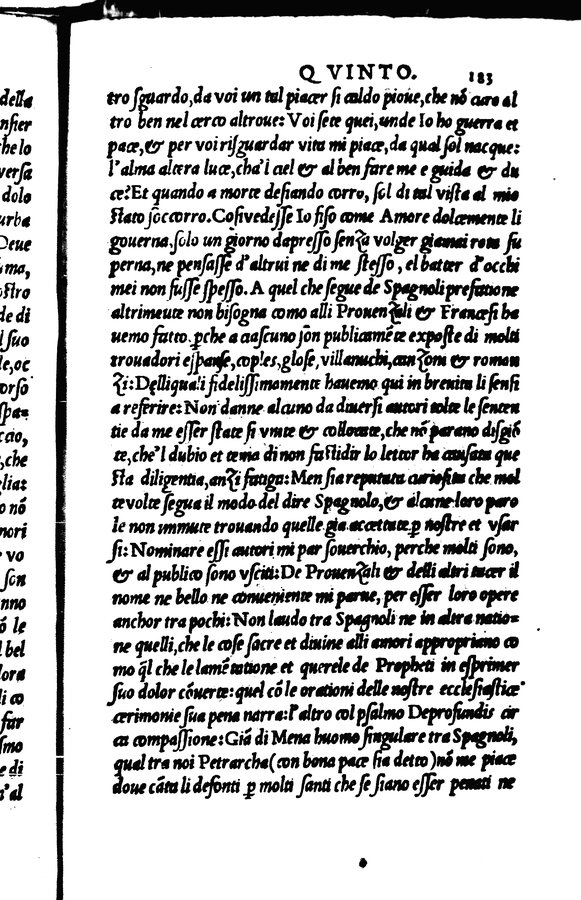 QVINTO. 183
tro sguardo,da voi un tal piacer si caldo pioue,che nõ curo al
tro ben nel cerco altroue: Voi sete quei, unde Io ho guerra et
pace,& per voi risguardar vita mi piace, da qual sol nacque:
l'alma altera luce, cha'l ciel & al ben fare me e guida & du
ce? Et quando a morte desiando corro, sol di tal vista al mio
stato soccorro. Cosi vedesse Io fiso come Amore dolcemente li
gouerna, solo un giorno dapresso senza volger giamai rota su
perna, ne pensasse d'altrui ne di me stesso, el batter d'occhi
mei non fusse spesso. A quel che segue de Spagnoli prefatione
altrimente non bisogna como alli Prouenzali & Francesi ha
uemo fatto, pche a ciascuno son publicamẽte exposte di molti
trouadori esparse, coples, glose, villanuchi, canzoni & roman
zi: Delliquali fidelissimamente hauemo qui in breuita li sensi
a referire: Non danne alcuno da diuersi autori tolte le senten
tie da me esser state si vnite & collocate, che nõ parano disgiõ
te, che'l dubio et tema di non fastidir lo lettor ha causata que
sta diligentia, anzi fatiga: Men sia reputata curiosita che mol
te volte segua il modo del dire Spagnolo, & alcune loro paro
le non immute trouando quelle gia accettate p nostre et vsar
si: Nominare essi autori mi par souerchio, perche molti sono,
& al publico sono vsciti: De Prouenzali & delli altri tacer il
nome ne bello ne conueniente mi parue, per esser loro opere
anchor tra pochi: Non laudo tra Spagnoli ne in altra natio=
ne quelli, che le cose sacre et diuine alli amori appropriano co
mo q̃l che le lamẽtatione et querele de Propheti in esprimer
suo dolor cõuerte: quel cõ le orationi delle nostre ecclesiastice
cerimonie sua pena narra: l'altro col psalmo Deprofundis cir
ca compassione: Giã di Mena huomo singulare tra Spagnoli,
qual tra noi Petrarcha (con bona pace sia detto) nõ me piace
doue cãta li defonti p molti santi che se siano esser penati ne